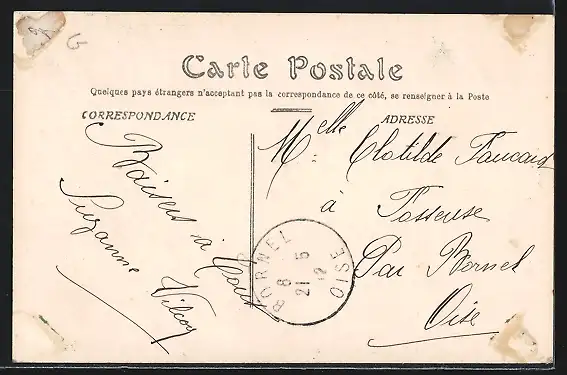 Carte Postale
Quelques pays étrangers n'acceptant pas la correspondance de ce côté, se renseigner à la Poste
CORRESPONDANCE
ADRESSE
Baisers à tous
Suzanne
Melle Clotilde
à Fosseuse
Par Bornel
Oise
BORNEL
8
21 5
12
OISE
G